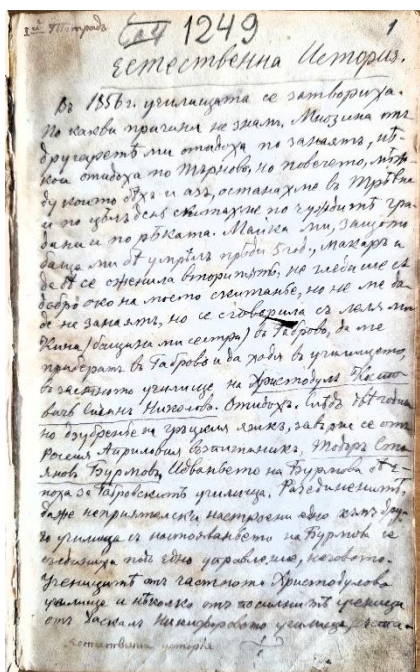 1249
1
Естественна История.
Въ 1856 г. училищата се затвориха.
По какви причини не знам. Мнозина отъ
другаретѣ ми отидоха по занаятъ, нѣ-
кои отидоха по Търново, но повечето, меж-
ду които бѣхъ и азъ, останахме въ Трѣвна
и по цѣлъ день скитахме по чуждитѣ гра-
дини и по рѣката. Майка ми, защото
баща ми бѣ умрѣлъ прѣди 5 год., макаръ и
да бѣ се оженила вторийпѫть, не гледаше съ
добро око на моето скитанье, но не ме да-
де на занаятъ, но се сговорила съ леля ми
Кина (бащина ми сестра) въ Габрово, да ме
приб­ератъ въ Габрово и да ходя въ училището,
въ частното училище на Христодулъ Костo-
вичъ Сичанъ Николова. Отидохъ. Слѣдъ двѣ годиш-
но бъбренье на гръцкия языкъ, завърже се отъ
Росия Априловия возпитаникъ, Тодоръ Сто-
яновъ Бурмовъ. Идваньето на Бурмова бѣ е-
поха за Габровскитѣ училища. Разединенитѣ,
даже неприятелски настроени едно къмъ дру-
го училища съ настояваньето на Бурмова се
съединиха подъ едно управление, неговото.
Ученицитѣ отъ частното Христодулово
училище и нѣколко отъ по силнитѣ ученици
отъ даскалъ Никифоровото училище,
естествена история